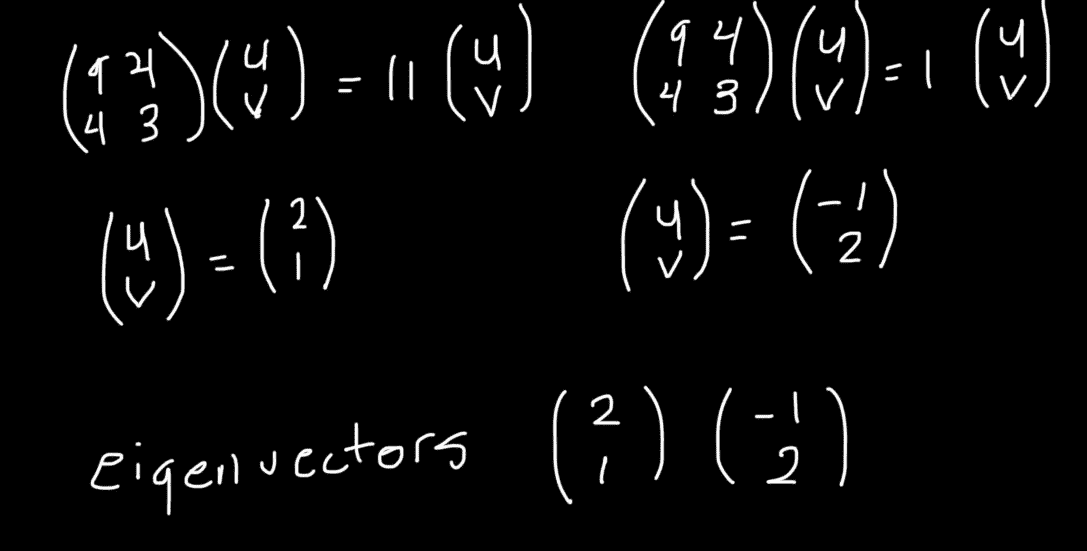 (9 4 4 3)(u v) = 11 (u v) (9 4 4 3)(u v) = 1 (u v)
(u v) = (2 1) (u v) = (-1 2)
eigenvectors (2 1) (-1 2)